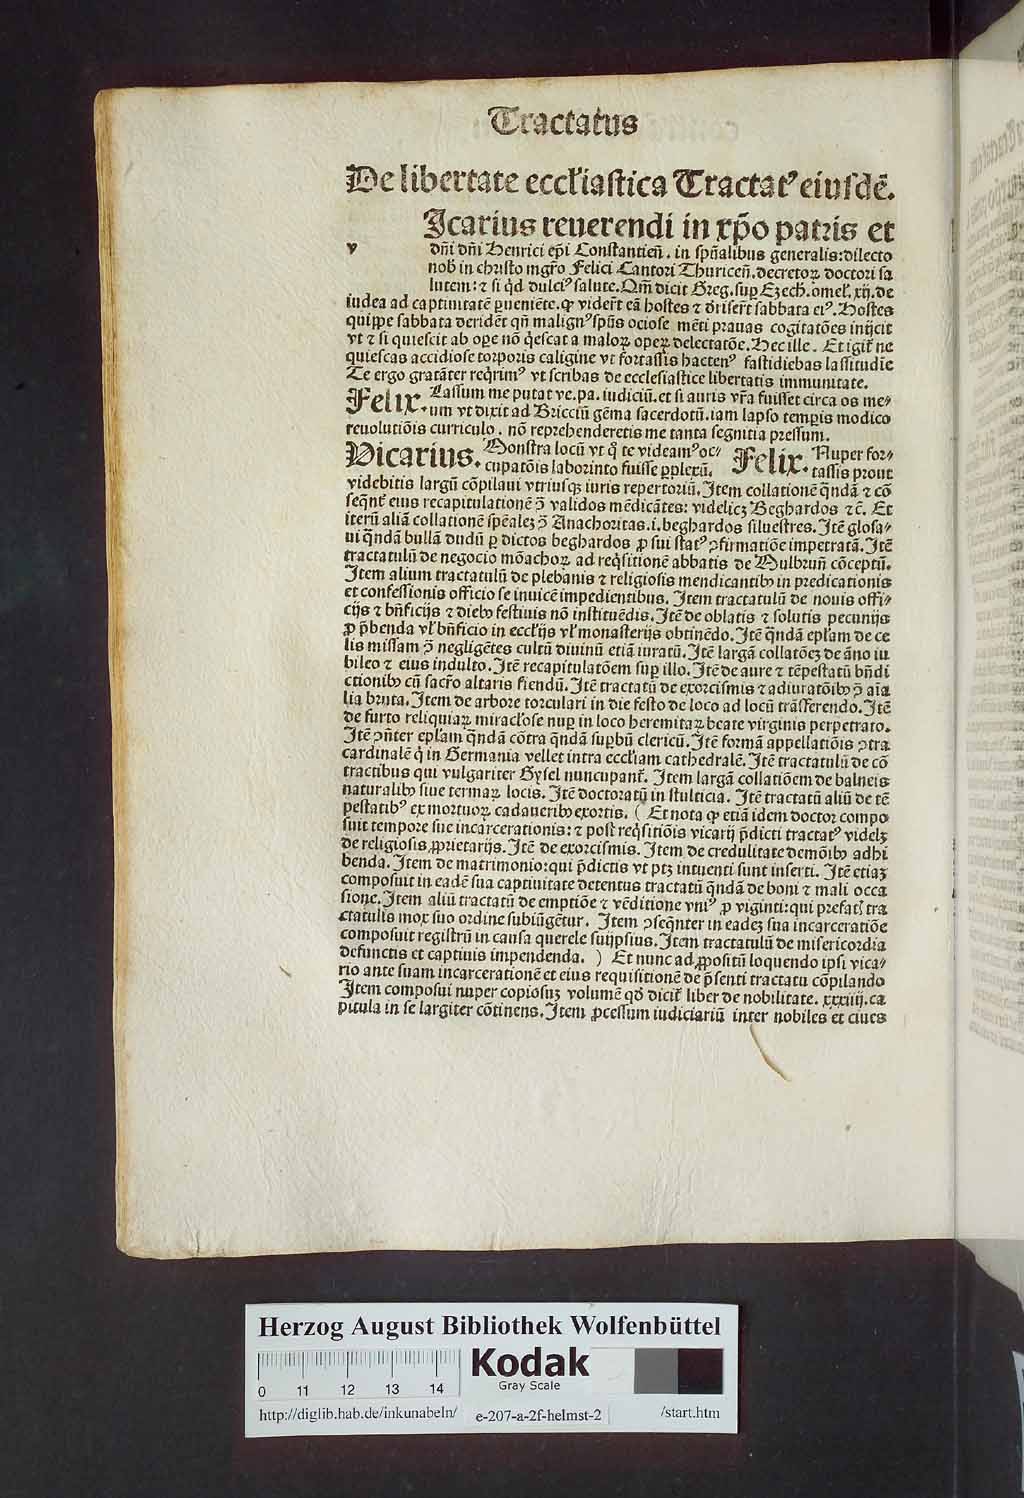 Tractatus
De libertate eccl'iastica Tractatꝰ eiusdē.
Icarius reuerendi in xp̄o patris et
v dn̄i dn̄i Henrici ep̄i Constantien̄. in sp̄ualibus generalis: dilecto
nob̄ in christo mgr̄o Felici Cantori Thuricen̄. decretoꝝ doctori sa
lutem: ⁊ si q̇d dulciꝰ salute. Qm̄ dicit Greg. sup̱ Ezech. omel'. xij. de
iudea ad captiuitatē ꝑueniēte. ꝙ viderūt eā hostes ⁊ deriserūt sabbata eiꝰ. Hostes
quippe sabbata derident qn̄ malignꝰ sp̄us ociose mēti prauas cogitatōes inijcit
vt ⁊ si quiescit ab oꝑe nō q̇escat a maloꝝ oꝑeꝝ delectatōe. Hec ille. Et igit̄ ne
quiescas accidiose torporis caligine vt fortassis hactenꝰ fastidiebas lassitudīe
Te ergo gratāter req̇rimꝰ vt scribas de ecclesiastice libertatis immunitate.
Felix. Lassum me putat ve. pa. iudiciū. et si auris vr̄a fuisset circa os me⸗
um vt dixit ad Bricciū gēma sacerdotū. iam lapso temꝑis modico
reuolutiōis curriculo. nō reprehenderetis me tanta segnitia pressum.
Vicarius. Monstra locū vt q̇ te videamꝰ oc⸗
cupatōis laborinto fuisse ꝑplexū. Felix. Nuper for⸗
tassis prout
videbitis largū cōpilaui vtriusqꝫ iuris repertoriū. Item collationē q̄ndā ⁊ cō
seq̄nt̄ eius recapitulationē ↄ̄ validos mēdicātes: videlicꝫ Beghardos ⁊c̄. Et
iterū aliā collationē sp̄ealeꝫ ↄ̄ Anachoritas .i. beghardos siluestres. Itē glosa⸗
ui q̄ndā bullā dudū ꝑ dictos beghardos ꝓ sui statꝰ ↄfirmatiōe impetratā. Itē
tractatulū de negocio mōachoꝝ ad req̇sitionē abbatis de Mulbrun̄ cōceptū.
Item alium tractatulū de plebanis ⁊ religiosis mendicantibꝰ in predicationis
et confessionis officio se inuicē impedientibus. Item tractatulū de nouis offi⸗
cijs ⁊ bn̄ficijs ⁊ diebꝰ festiuis nō instituēdis. Itē de oblatis ⁊ solutis pecunijs
ꝓ p̄benda vl' bn̄ficio in eccl'ijs vl' monasterijs obtinēdo. Itē q̄ndā epl'am de ce
lis missam ↄ̄ negligētes cultū diuinū etiā iuratū. Itē largā collatōeꝫ de āno iu
bileo ⁊ eius indulto. Itē recapitulatōem sup̱ illo. Itē de aure ⁊ tēpestatū bn̄di
ctionibꝰ cū sacr̄o altaris fiendū. Itē tractatū de exorcismis ⁊ adiuratōibꝰ ↄ̄ aīa
lia bruta. Item de arbore torculari in die festo de loco ad locū trāsferendo. Itē
de furto reliquiaꝝ miracl'ose nup̱ in loco heremitaꝝ beate virginis perpetrato.
Itē ↄn̄ter epl'am q̄ndā cōtra q̄ndā suꝑbū clericū. Itē formā appellatiōis ↄtra
cardinalē q̇ in Germania vellet intra eccl'iam cathedralē. Itē tractatulū de cō
tractibus qui vulgariter Gysel nuncupant̄. Item largā collatiōem de balneis
naturalibꝰ siue termaꝝ locis. Itē doctoratū in stulticia. Itē tractatū aliū de tē
pestatibꝰ ex mortuoꝝ cadaueribꝰ exortis. ( Et nota ꝙ etiā idem doctor compo
suit tempore sue incarcerationis: ⁊ post req̇sitiōis vicarij p̄dicti tractatꝰ videlꝫ
de religiosis ꝓprietarijs. Itē de exorcismis. Item de credulitate demōibꝰ adhi
benda. Item de matrimonio: qui p̄dictis vt ptꝫ intuenti sunt inserti. Itē etiaꝫ
composuit in eadē sua captiuitate detentus tractatū q̄ndā de boni ⁊ mali occa
sione. Item aliū tractatū de emptiōe ⁊ vēditione vniꝰ ꝓ viginti: qui prefatꝭ tra
ctatulis mox suo ordine subiūgētur. Item ↄseq̄nter in eadeꝫ sua incarceratiōe
composuit registrū in causa querele suijpsius. Item tractatulū de misericordia
defunctis et captiuis impendenda. ) Et nunc ad ꝓpositū loquendo ipsi vica⸗
rio ante suam incarcerationē et eius requisitionē de p̄senti tractatu cōpilando
Item composui nuper copiosuꝫ volumē qd̄ dicit̄ liber de nobilitate. xxxiiij. ca
pitula in se largiter cōtinens. Item ꝓcessum iudiciariū inter nobiles et ciues
Herzog August Bibliothek Wolfenbüttel
0 11 12 13 14
Kodak
Gray Scale
http://diglib.hab.de/inkunabeln/ e-207-a-2f-helmst-2 /start.htm